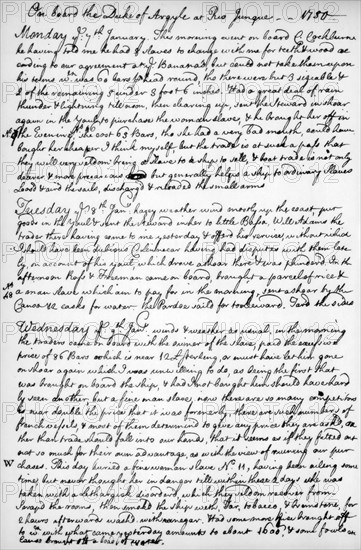 On board the Duke of Argyle at Rio Jungue - 1750
Monday ye 7th January. This morning went on board C. Cockburne
he having told me he had 8 slaves to change with me for teeth & wood ac
cording to our agreement at ye Bananas, but could not take them upon
his terms wch was 60 bars pr head round, tho there were but 3 sizeable &
2 of the remaining 5 under 3 foot 6 inches. Had a great deal of rain
thunder & lightning till noon, then clearing up, sent the Steward in shoar
again in the yaul to purchase the woman slave, & he brought her off in
No 27 the Evening. She cost 63 Bars, tho she had a very bad mouth, could have
bought her cheaper I think myself, but the trade is at such a pass that
they will very seldom bring a slave to a ship to sell, & boat trade is not only
dearer & more precarious but generally helps a ship to ordinary slaves
Loos'd and the sails, discharg'd & reloaded the small arms
Tuesday ye 8th Jany hazey weather wind mostly up the coast, put
goods in the yaul & sent the steward under to little Bassa, Will Adams the
trader there having come to me yesterday & offerd his service, without which
I should have been dubious having had disputes with them late
ly on account of his yaul which drove a shoar there & was plundered. In the
afternoon Ross & Freeman came on board, brought a parcel of rice &
No 28 a man slave which am to pay for in the morning, sent a shoar by the
Canoa 2 casks for water. The Pardoe sail'd for to leeward. Tard the sides
Wednesday ye 9th Jany winds & weather as usual, in the morning
the traders came on board with the owner of the slave, paid the excessive
price of 86 Bars which is near 12£ sterling, or must have let him gone
on shoar again which I was unwilling to do, as being the first that
was brought on board the ship, & had I not bought him should have hard
ly seen another, but a fine man slave, now there are so many competitors
is near double the price that it was formerly. There are such numbers of
french vessels, & most of them determined to give any price they are ask'd, ra
ther than trade should fall into our hands, that it seems as if they fitted out
not so much for their own advantage, as with the view of ruining our pur
chases. This day buried a fine woman slave No 11, having been ailing some
W time, but never thought her in danger till within these 2 days she was
taken with a lethargick disorder, which they seldom recover from.
Scraped the rooms, then smoked the ship with tar, tobacco, & brimstone for
2 hours afterwards wash'd with vinegar. Had some more rice brought off
to us wch with what came yesterday amounts to about 1600 lb & some fowls